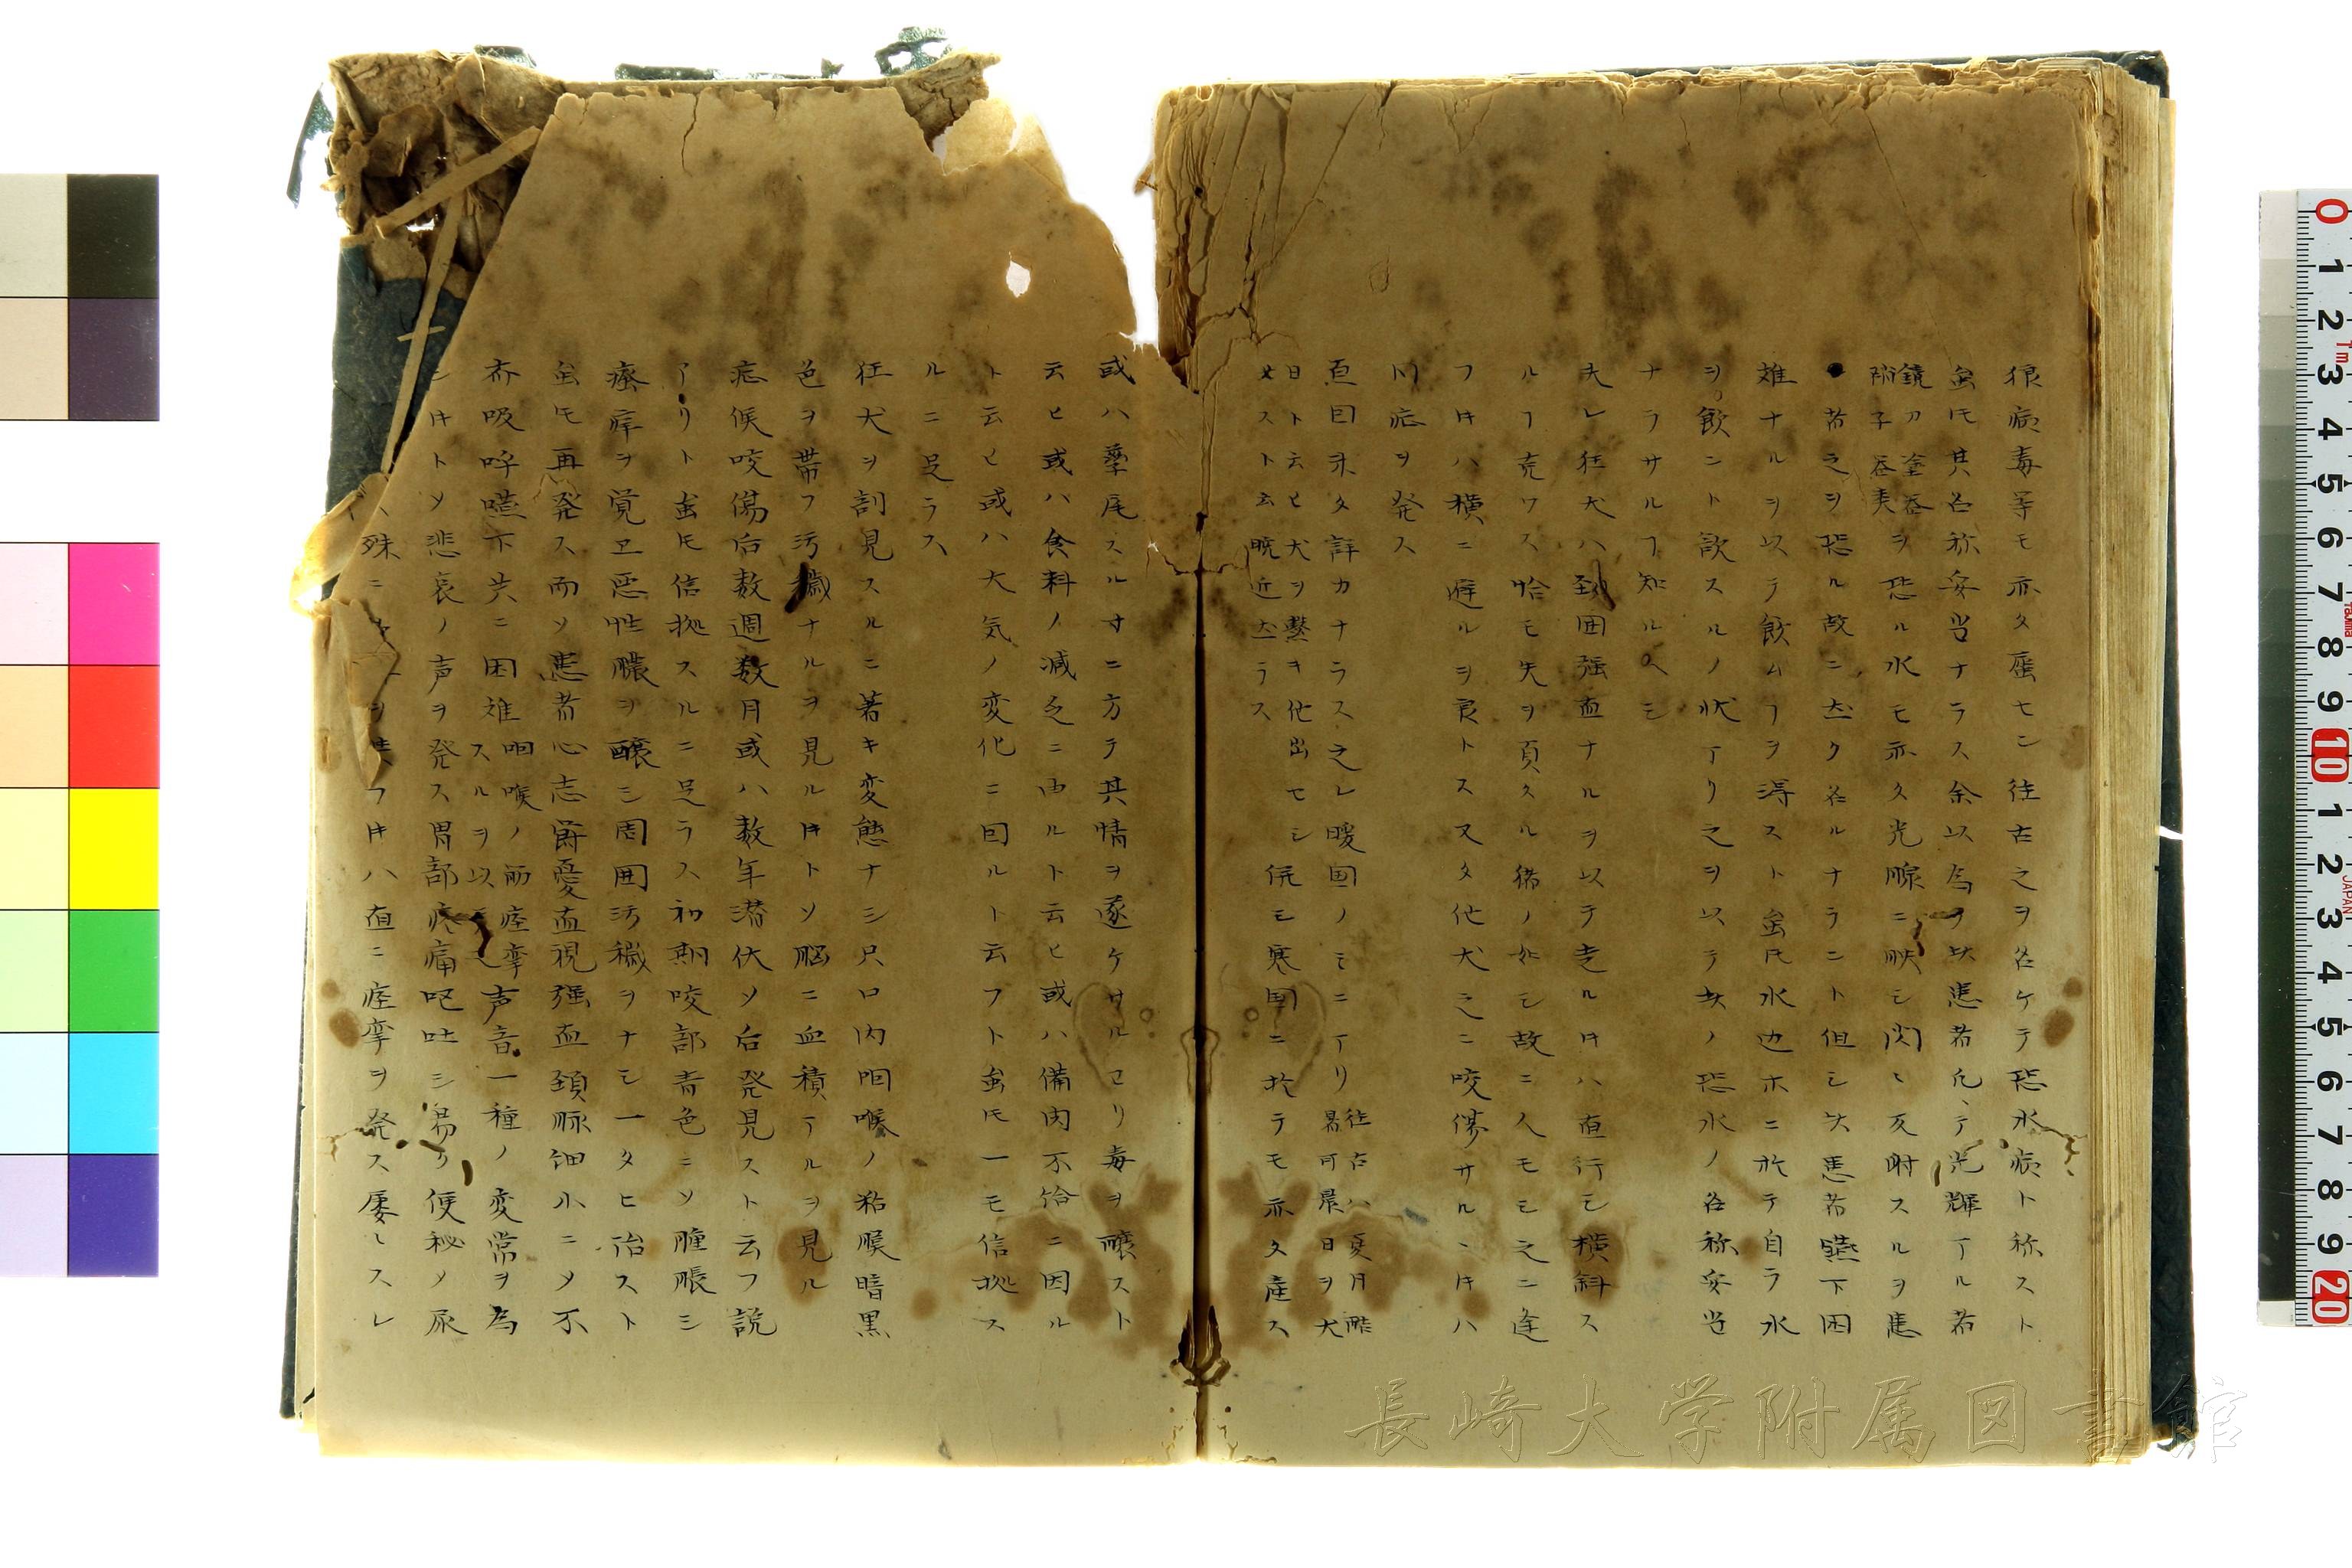 狼病毒等モ亦タ蜃セン往古之ヲ名ケテ恐水病ト称スト
虽㕥其名称妥当ナラス余以為ラ此患者凡テ光輝アル者
鏡刀塗呑
附子呑表ヲ恐ル水モ亦タ光腺ニ映シ閃々反射スルヲ患
者之ヲ恐ル故ニ玆ク名ルナラント但シ此患者嚥下困
難ナルヲ以テ飲ムヿヲ得スト虽㕥水辺ホニ於テ自ラ水
ヲ飲ント欲スルノ状アリ之ヲ以テ其ノ恐水ノ名称妥当
ナラサルヿ知ルヘシ
夫レ狂犬ハ頚囲強直ナルヲ以テ走ルキハ直行シ横斜ス
ルヿ克ワス恰モ矢ヲ負タル猪ノ如シ故ニ人モシ之ニ逢
フキハ横ニ避ルヲ良トス又タ他犬之ニ咬傷サルヽキハ
同症ヲ発ス
原因未タ詳カナラス之レ暖国ノミニアリ
往古ハ夏月酷
暑可晨日ヲ犬
日ト云ヒ犬ヲ繋キ他出セシ
メスト云暁近玆ラス
併モ寒国ニ於テモ亦タ産ス
或ハ孳尾スルサニ方テ其情ヲ遂ケサルヨリ毒ヲ醸スト
云ヒ或ハ食料ノ減乏ニ由ルト云ヒ或ハ備肉不給ニ因ル
ト云ヒ或ハ大気ノ変化ニ因ルト云フト虽㕥一モ信拠ス
ルニ足ラス
狂犬ヲ剖見スルニ著キ変態ナシ只口内咽喉ノ粘膜暗黒
色ヲ帯フ汚穢ナルヲ見ルキトソ脳ニ血積アルヲ見ル
症候咬傷后数週数月或ハ数年潜伏ソ后発見スト云フ説
アリト虽㕥信拠スルニ足ラス初期咬部青色ニソ腫脹シ
瘙痒ヲ覚ヱ悪性膿ヲ醸シ周囲汚穢ヲナシ一タヒ治スト
虽㕥再発ス而ソ患者心志欝憂直視強直頚脈細小ニソ不
斉吸呼嚥下共ニ困難
咽喉ノ筋痙攣
スルヲ以テ之
声音一種ノ変常ヲ為
シキトソ悲哀ノ声ヲ発ス胃部疼痛呕吐シ易ク便秘ソ尿
殊ニ
フキハ直ニ痙攣ヲ発ス屡々スレ
長崎大学附属図書館